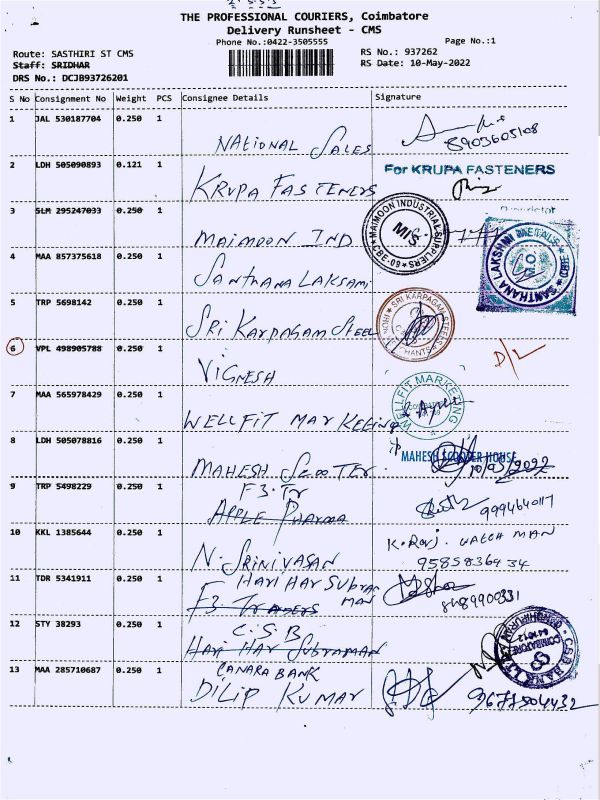 THE PROFESSIONAL COURIERS, Coimbatore
Delivery Runsheet - CMS
Phone No.:0422-3505555
Page No.:1
Route: SASTHIRI ST CMS
RS No.: 937262
Staff: SRIDHAR
RS Date: 10-May-2022
DRS No.: DCJB93726201
S No Consignment No Weight PCS Consignee Details Signature
1 JAL 530187704 0.250 1 NATIONAL SALES 8903605108
2 LDH 505090893 0.121 1 KRUPA FASTENERS For KRUPA FASTENERS
3 SLM 295247033 0.250 1 MAIMOON IND MAIMOON INDUSTRIAL SUPPLIERS MIS CBE-09
4 MAA 857375618 0.250 1 SANTHANA LAKSAMI SANTHANA LAKSHMI METALS
5 TRP 5698142 0.250 1 SRI KARPAGAM STEEL SRI KARPAGAM STEELS
6 VPL 498905788 0.250 1 VIGNESH D/L
7 MAA 565978429 0.250 1 WELLFIT MARKETING WELLFIT MARKETING
8 LDH 505078816 0.250 1 MAHESH SCOOTER MAHESH SCOOTER HOUSE 10/05/2022
9 TRP 5498229 0.250 1 F3.Tr
APPLE PHARMA 9994640117
10 KKL 1385644 0.250 1 N. SRINIVASAN K. Ravj. WATCH MAN
9585836934
11 TDR 5341911 0.250 1 HARI HAR SUBRA
MAN
F3 TRADERS
12 STY 38293 0.250 1 C.S.B
HARI HAR SUBRAMAN C.S.B BANK LTD COIMBATORE
13 MAA 285710687 0.250 1 CANARA BANK
DILIP KUMAR 9677504432